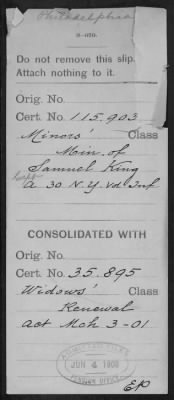 Philadelphia
3-020.
Do not remove this slip.
Attach nothing to it.
Orig. No.
Cert. No. 115.903
Minors' Class
Min. of
Samuel King
A 30 N.Y. Vol Inf
CONSOLIDATED WITH
Orig. No.
Cert. No. 35.895
Widows' Class
Renewal
Act Mch 3-01
JUN 4 1908
PENSION OFFICE